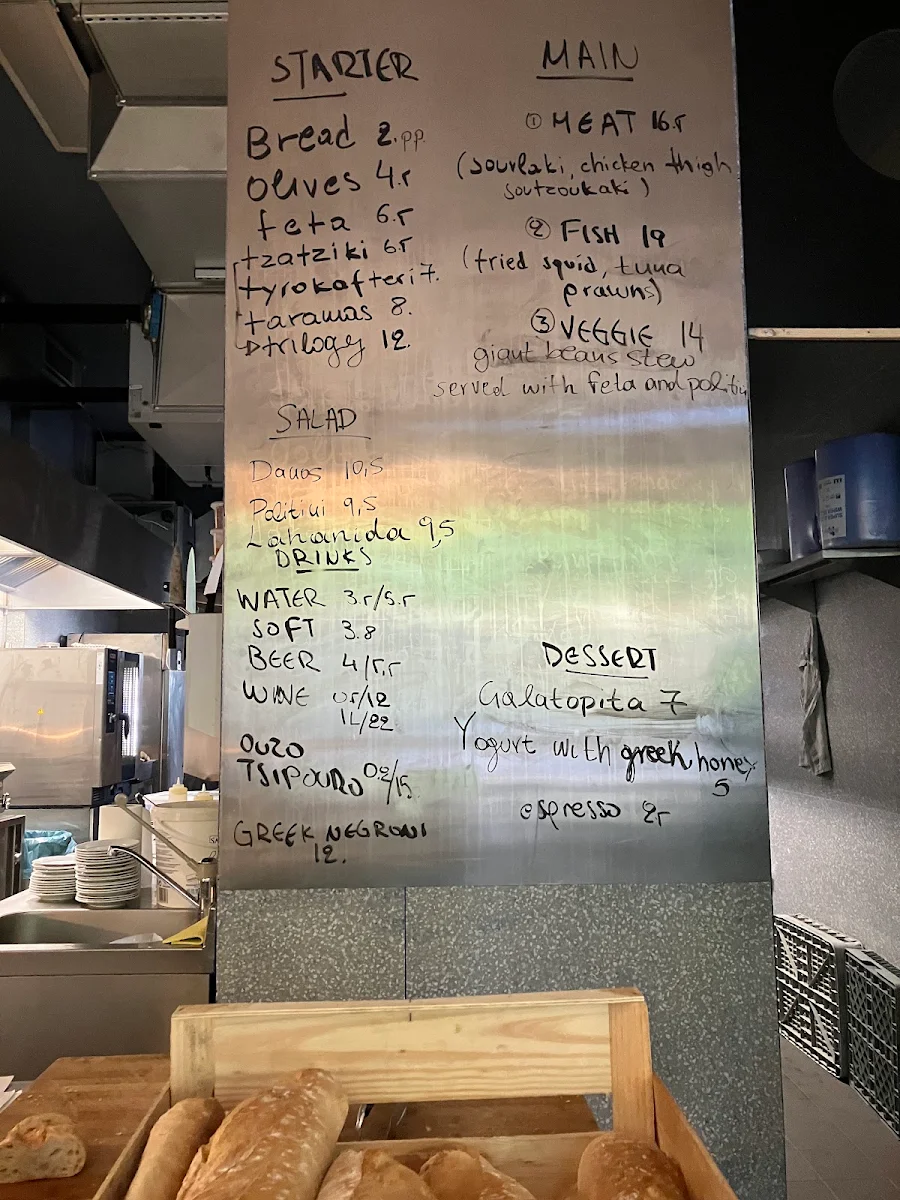 STARTER
Bread 2.pp.
olives 4.5
feta 6.5
tzatziki 6.5
tyrokafteri 7.
taramas 8.
trilogy 12.
SALAD
Dakos 10,5
Politiki 9,5
Lahanida 9,5
DRINKS
WATER 3.5/5.5
SOFT 3.8
BEER 4/5,5
WINE 0.5/12
1L/22
OUZO
TSIPOURO 0.2/15
GREEK NEGRONI
12.
MAIN
① MEAT 16.5
(souvlaki, chicken thigh
soutzoukaki)
② FISH 19
(fried squid, tuna
prawns)
③ VEGGIE 14
giant beans stew
served with feta and politiki
DESSERT
Galatopita 7
Yogurt with greek honey
5
espresso 2,5